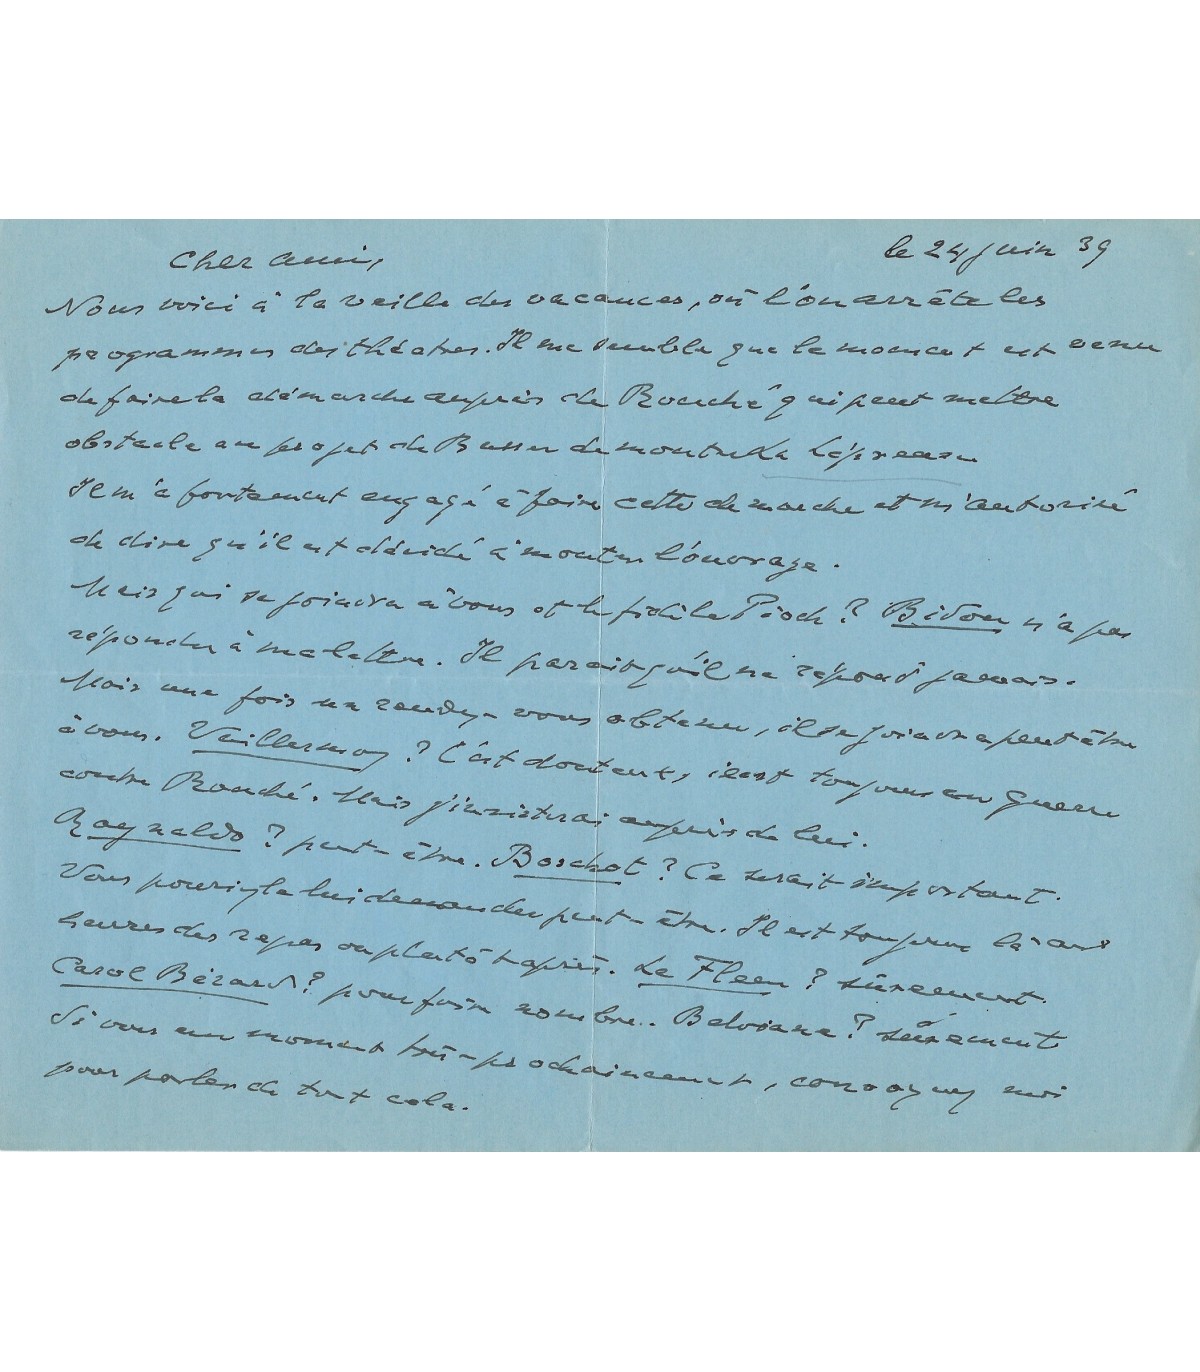 le 24 juin 39
Cher ami,
Nous voici à la veille des vacances, où l'on arrête les
programmes des théatres. Il me semble que le moment est venu
de faire la démarche auprès de Rouché qui peut mettre
obstacle au projet de Busser de monter La Lépreuse
Il m'a fortement engagé à faire cette demarche et m'autorisé
de dire qu'il est décidé à monter l'ouvrage.
Mais qui se joindra à vous et le fidèle Pioch ? Bidou n'a pas
répondu à ma lettre. Il parait qu'il ne répond jamais.
Mais une fois un rendez-vous obtenu, il se joindra peut être
à vous. Vuillermoz ? C'est douteux, il est toujours en guerre
contre Rouché. Mais j'insisterai auprès de lui.
Raynaldo ? peut-être. Boschot ? Ce serait important.
Vous pouriez le lui demander peut-être. Il est toujours là aux
heures des repas ou plutôt après. Le Flem ? sûrement.
Carol Bérard ? pour faire nombre.. Belviane ? sûrement
Si vous un moment très-prochainement, convoquez moi
pour parler de tout cela.